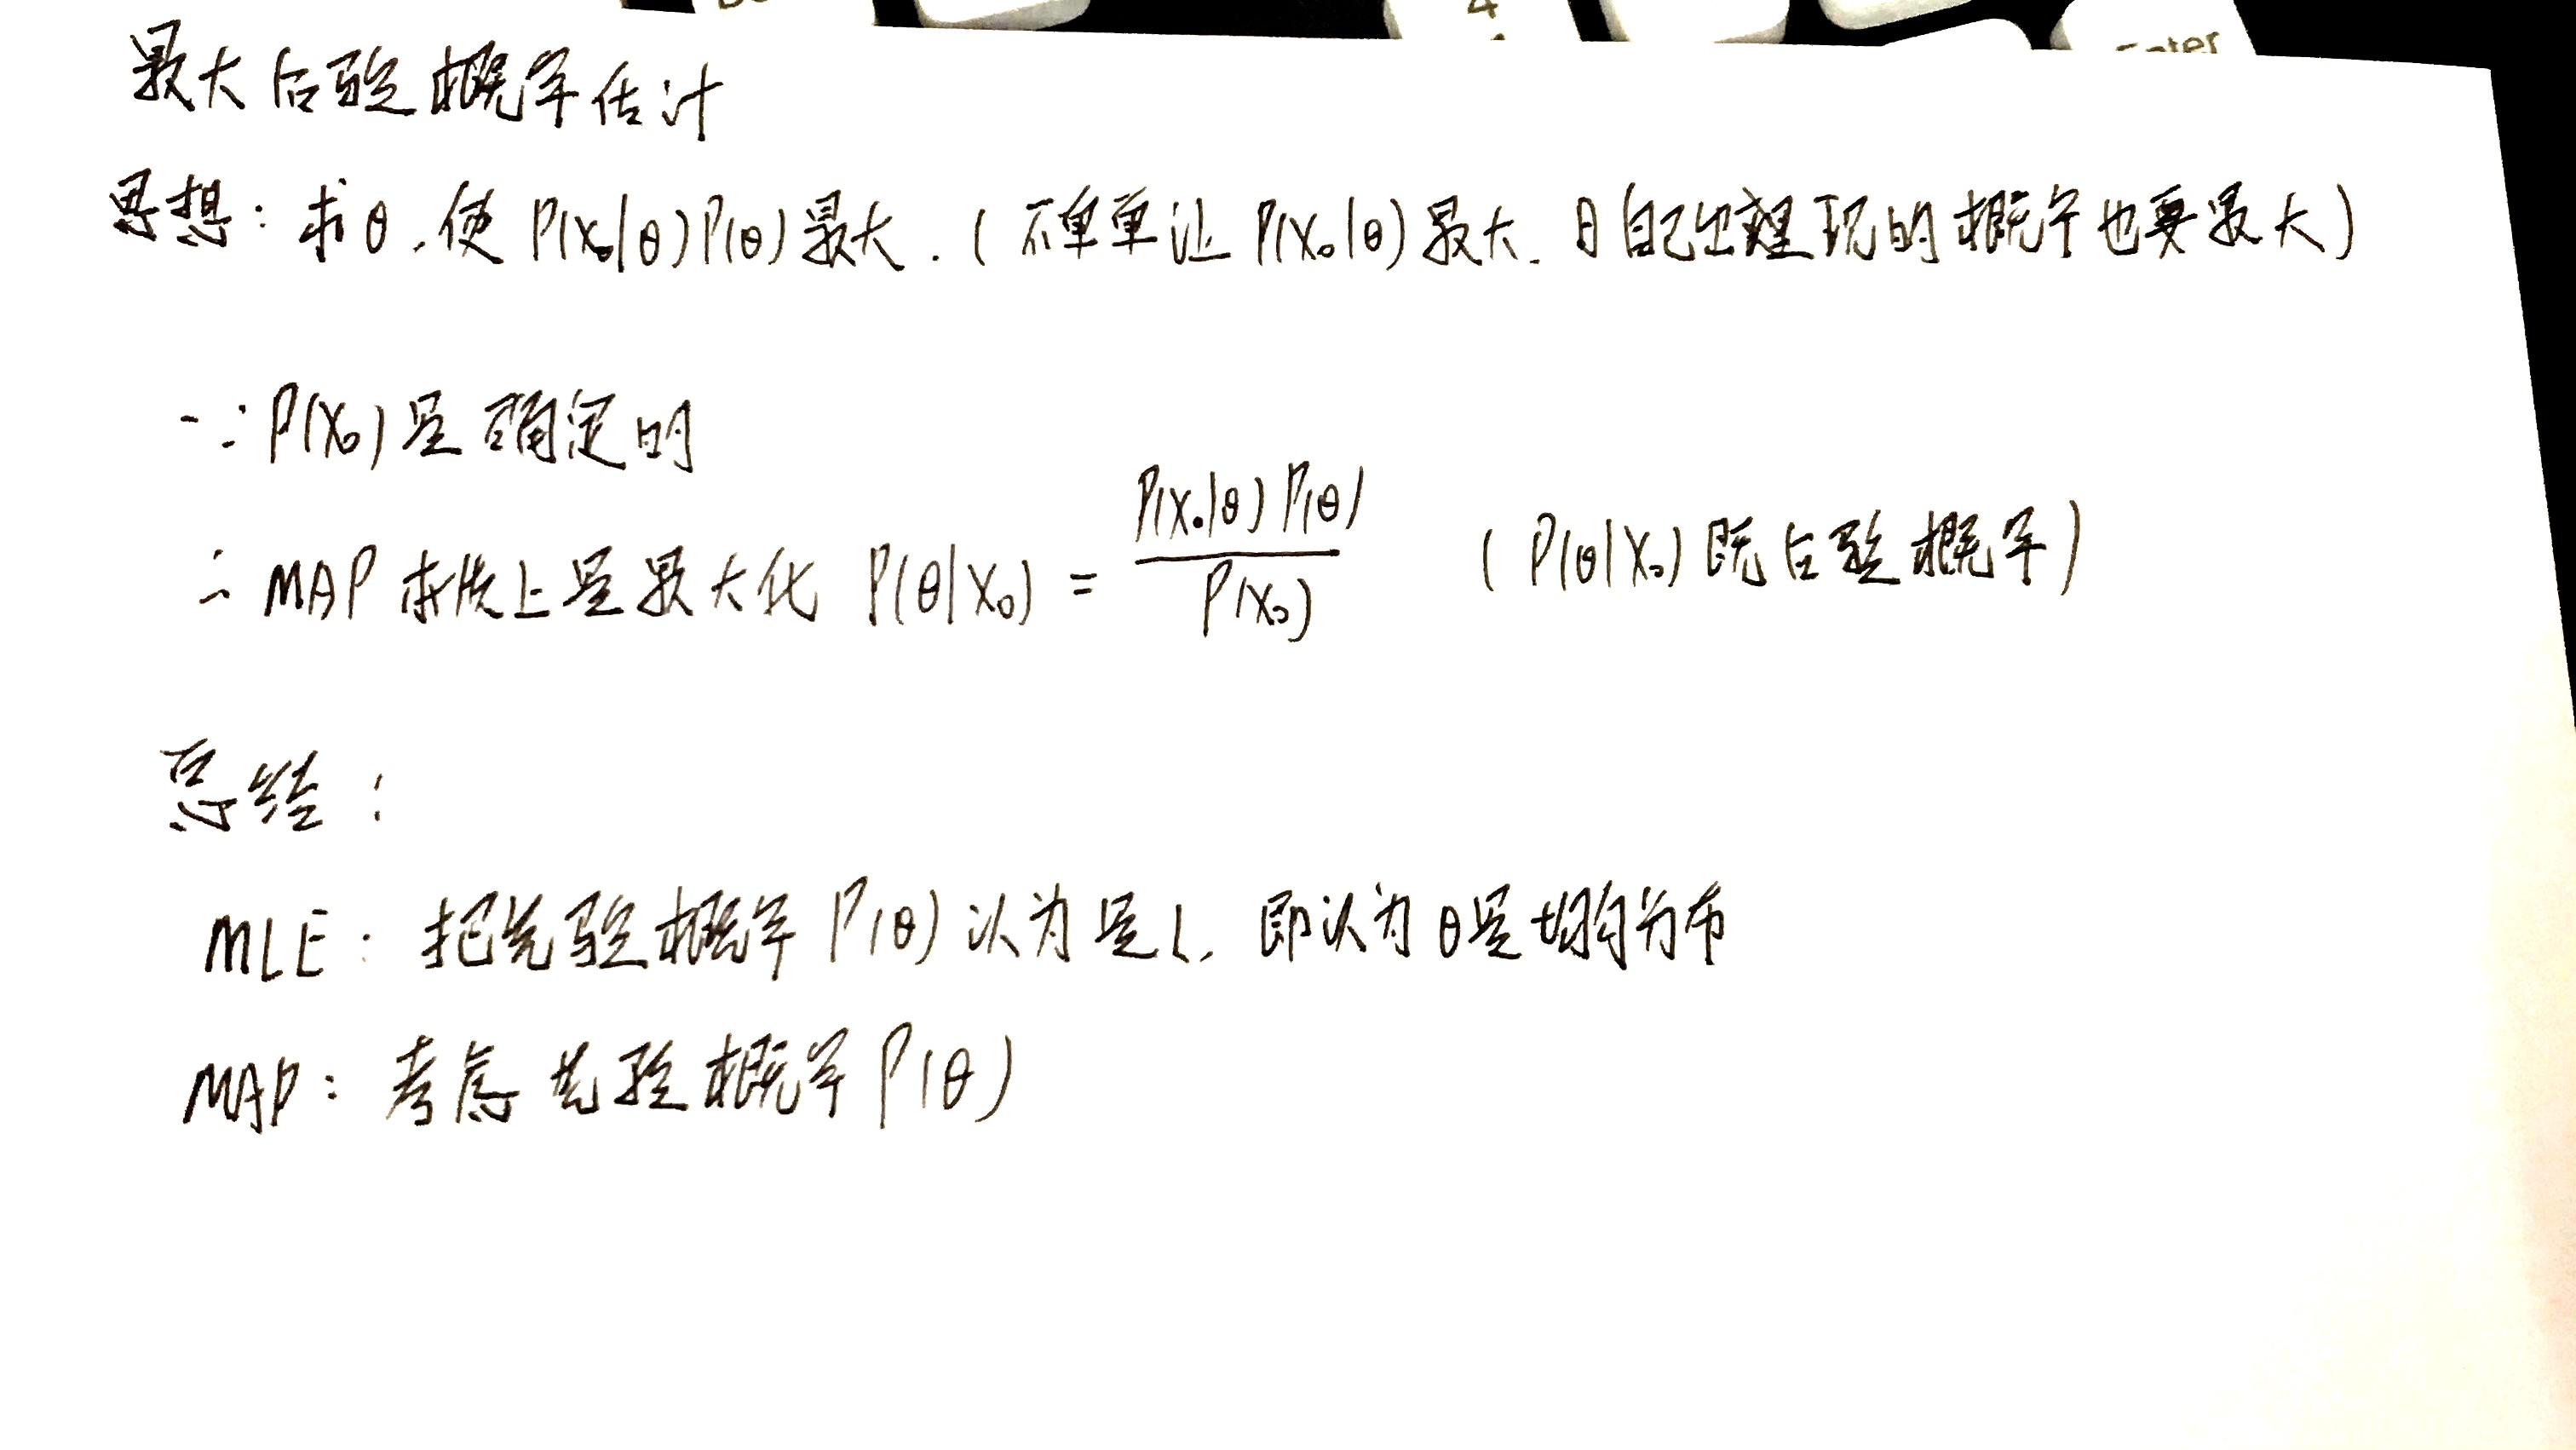 4
Enter
最大后验概率估计
思想：求θ，使 P(x₀|θ)P(θ)最大．（不单单让 P(x₀|θ)最大．θ自己出现的概率也要最大）
∵ P(x₀)是确定的
∴ MAP 本质上是最大化 P(θ|x₀) = P(x₀|θ)P(θ) / P(x₀) （P(θ|x₀)既后验概率）
总结：
MLE：把先验概率P(θ)认为是1，即认为θ是均匀分布
MAP：考虑先验概率P(θ)